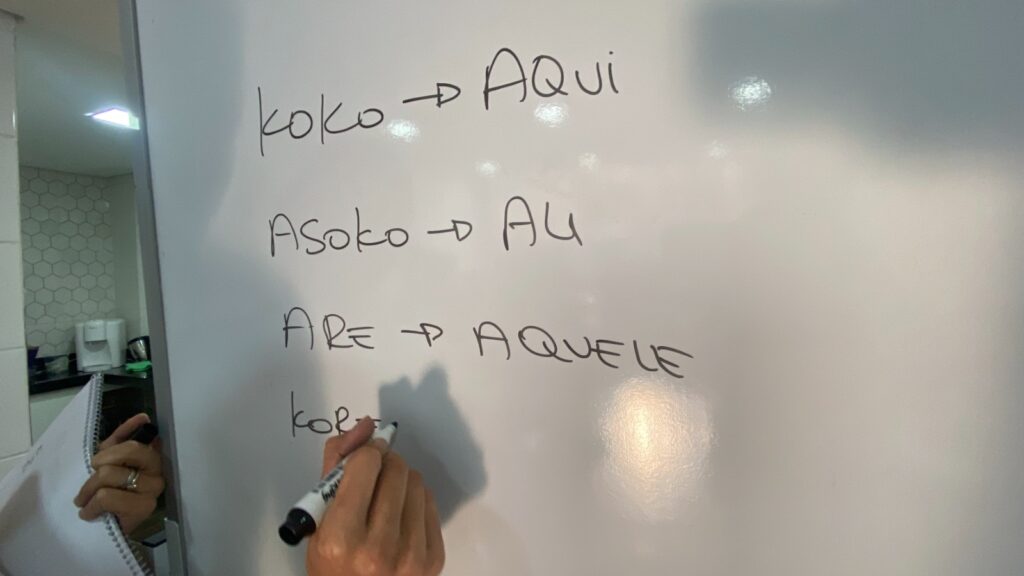 KOKO → AQUI
ASOKO → ALI
ARE → AQUELE
KORE